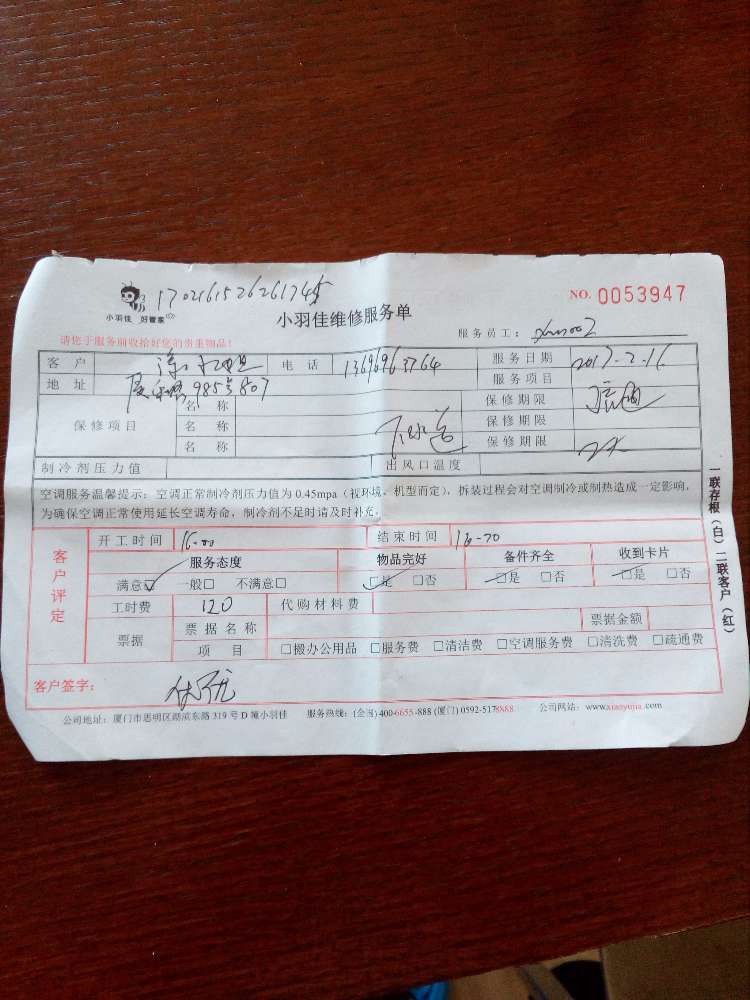 1702161526261745
小羽佳 好管家
小羽佳维修服务单
NO. 0053947
请您于服务前收拾好您的贵重物品!
服务员工:
客户 电话 13696963764 服务日期 2017-2-16
地址 985号807 服务项目
保修项目 名称 保修期限
名称 下水道 保修期限
名称 保修期限
制冷剂压力值 出风口温度
空调服务温馨提示:空调正常制冷剂压力值为0.45mpa(视环境、机型而定),拆装过程会对空调制冷或制热造成一定影响,
为确保空调正常使用延长空调寿命,制冷剂不足时请及时补充。
客户评定
开工时间 16-00 结束时间
服务态度 物品完好 备件齐全 收到卡片
满意☑ 一般□ 不满意□ ☑是 □否 ☑是 □否 ☑是 □否
工时费 120 代购材料费
票据 票据名称 票据金额
项目 □搬办公用品 □服务费 □清洁费 □空调服务费 □清洗费 □疏通费
客户签字:
公司地址:厦门市思明区湖滨东路319号D幢小羽佳 服务热线:(全国)400-6655-888 (厦门)0592-5178888 公司网站:www.xiaoyujia.com
一联存根(白)二联客户(红)